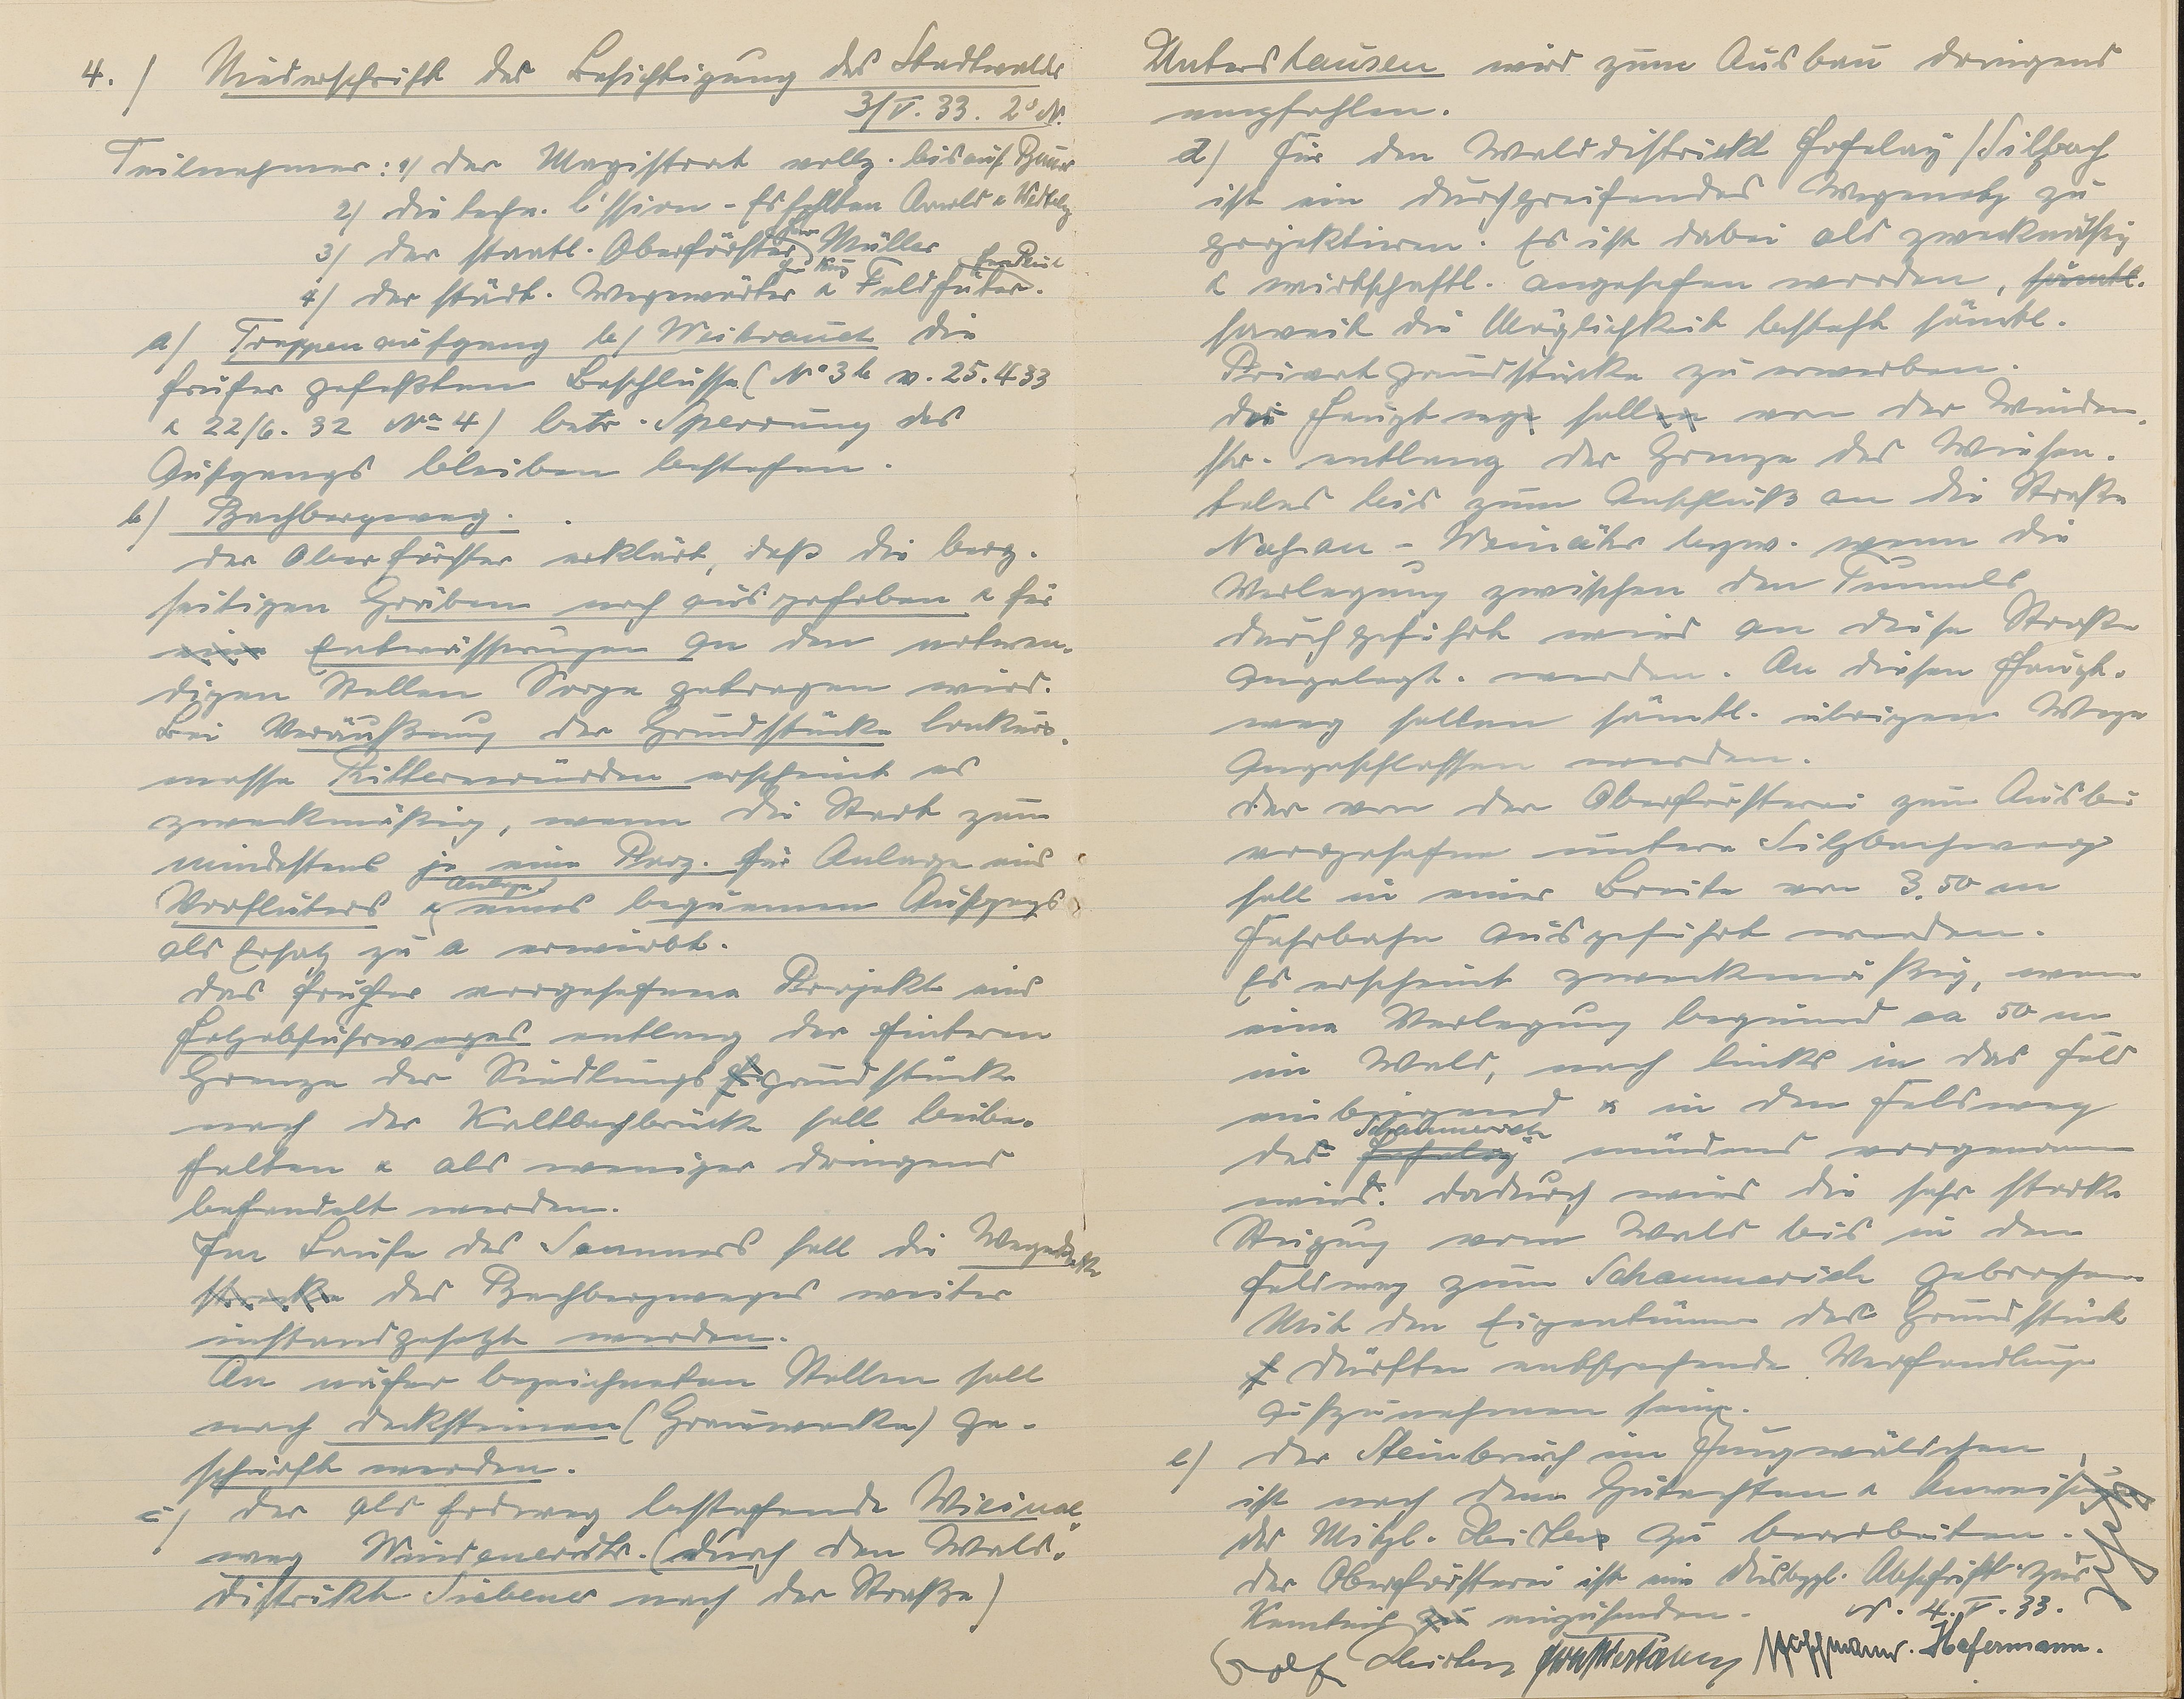 4.) Niederschrift der Besichtigung des Stadtwaldes
3/V. 33. 2° N.
Teilnehmer: 1) der Magistrat vollz. bis auf Bauer
2) die techn. C'ssion - Es fehlten Arnold &
3) der staatl. Oberförster Herr Müller
4) der städt. Wegewärter & Feldhüter.
a) Treppenaufgang b/ Weibrauch die
früher gefaßten Beschlüsse (No 3b v. 25.4 33
& 22/6. 32 No 4) betr. Sperrung des
Aufgangs bleiben bestehen.
b) Bachbergweg.
der Oberförster erklärt, daß die berg-
seitigen Gräben noch ausgehoben & für
Entwässerungen an den notwen-
digen Stellen Sorge getragen wird.
Bei Veräußerung der Grundstücke Conkurs-
masse Rittersmürden erscheint es
zweckmäßig, wenn die Stadt zum
mindestens je eine Parz. für Anlage eines
Vorfluters & Anlage eines bequemen Aufgangs
als Ersatz zu a erwirbt.
das früher vorgesehene Projekt eines
Holzabfuhrweges entlang der hinteren
Grenze der Siedlungsgrundstücke
nach der Kaltbachbrücke soll beibe-
halten & als weniger dringend
behandelt werden.
Im Laufe des Sommers soll die Wegedecke
strecke des Bachbergweges weiter
instandgesetzt werden.
An näher bezeichneten Stellen soll
nach Decksteinen (Grauwacke) ge-
schürft werden.
c) der als Erdweg bestehende Vicinal-
weg (durch den Wald-
distrikt Siebener nach der Straße)
Untershausen wird zum Ausbau dringend
empfohlen.
d) Für den Walddistrikt Hohelay / Silzbach
ist ein durchgreifendes Wegenetz zu
projektieren. Es ist dabei als zweckmäßig
& wirtschaftl. angesehen worden, sämtl.
soweit die Möglichkeit besteht sämtl.
Privatgrundstücke zu erwerben.
der Hauptweg soll von der Winden-
str. entlang der Grenze des Wiesen-
tales bis zum Anschluß an die Straße
Nassau - Weinähr bezw. wenn die
Verlegung zwischen den Tunnels
durchgeführt wird an diese Straße
angelegt werden. An diesen Haupt-
weg sollen sämtl. übrigen Wege
angeschlossen werden.
der von der Oberförsterei zum Ausbau
vorgesehene untere Silzbachweg
soll in einer Breite von 3.50 m
Fahrbahn ausgeführt werden.
Es erscheint zweckmäßig, wenn
eine Verlegung beginnend ca 50 m
im Wald, nach links in das Feld
einbiegend & in den Feldweg
des Schammerich Hohelay mündend vorgenommen
wird. dadurch wird die sehr starke
Steigung vom Wald bis in den
Feldweg zum Schammerich gebrochen.
Mit den Eigentümern der Grundstücke
dürften entsprechende Verhandlungen
aufzunehmen sein.
e) der Steinbruch im Jungwäldchen
ist nach dem Gutachten & Anweisung
des Mitgl. zu bearbeiten.
der Oberförsterei ist eine diesbzgl. Abschrift zur
Kenntnis zu einzusenden. N. 4. V. 33.
Hoffmann. Hafermann.